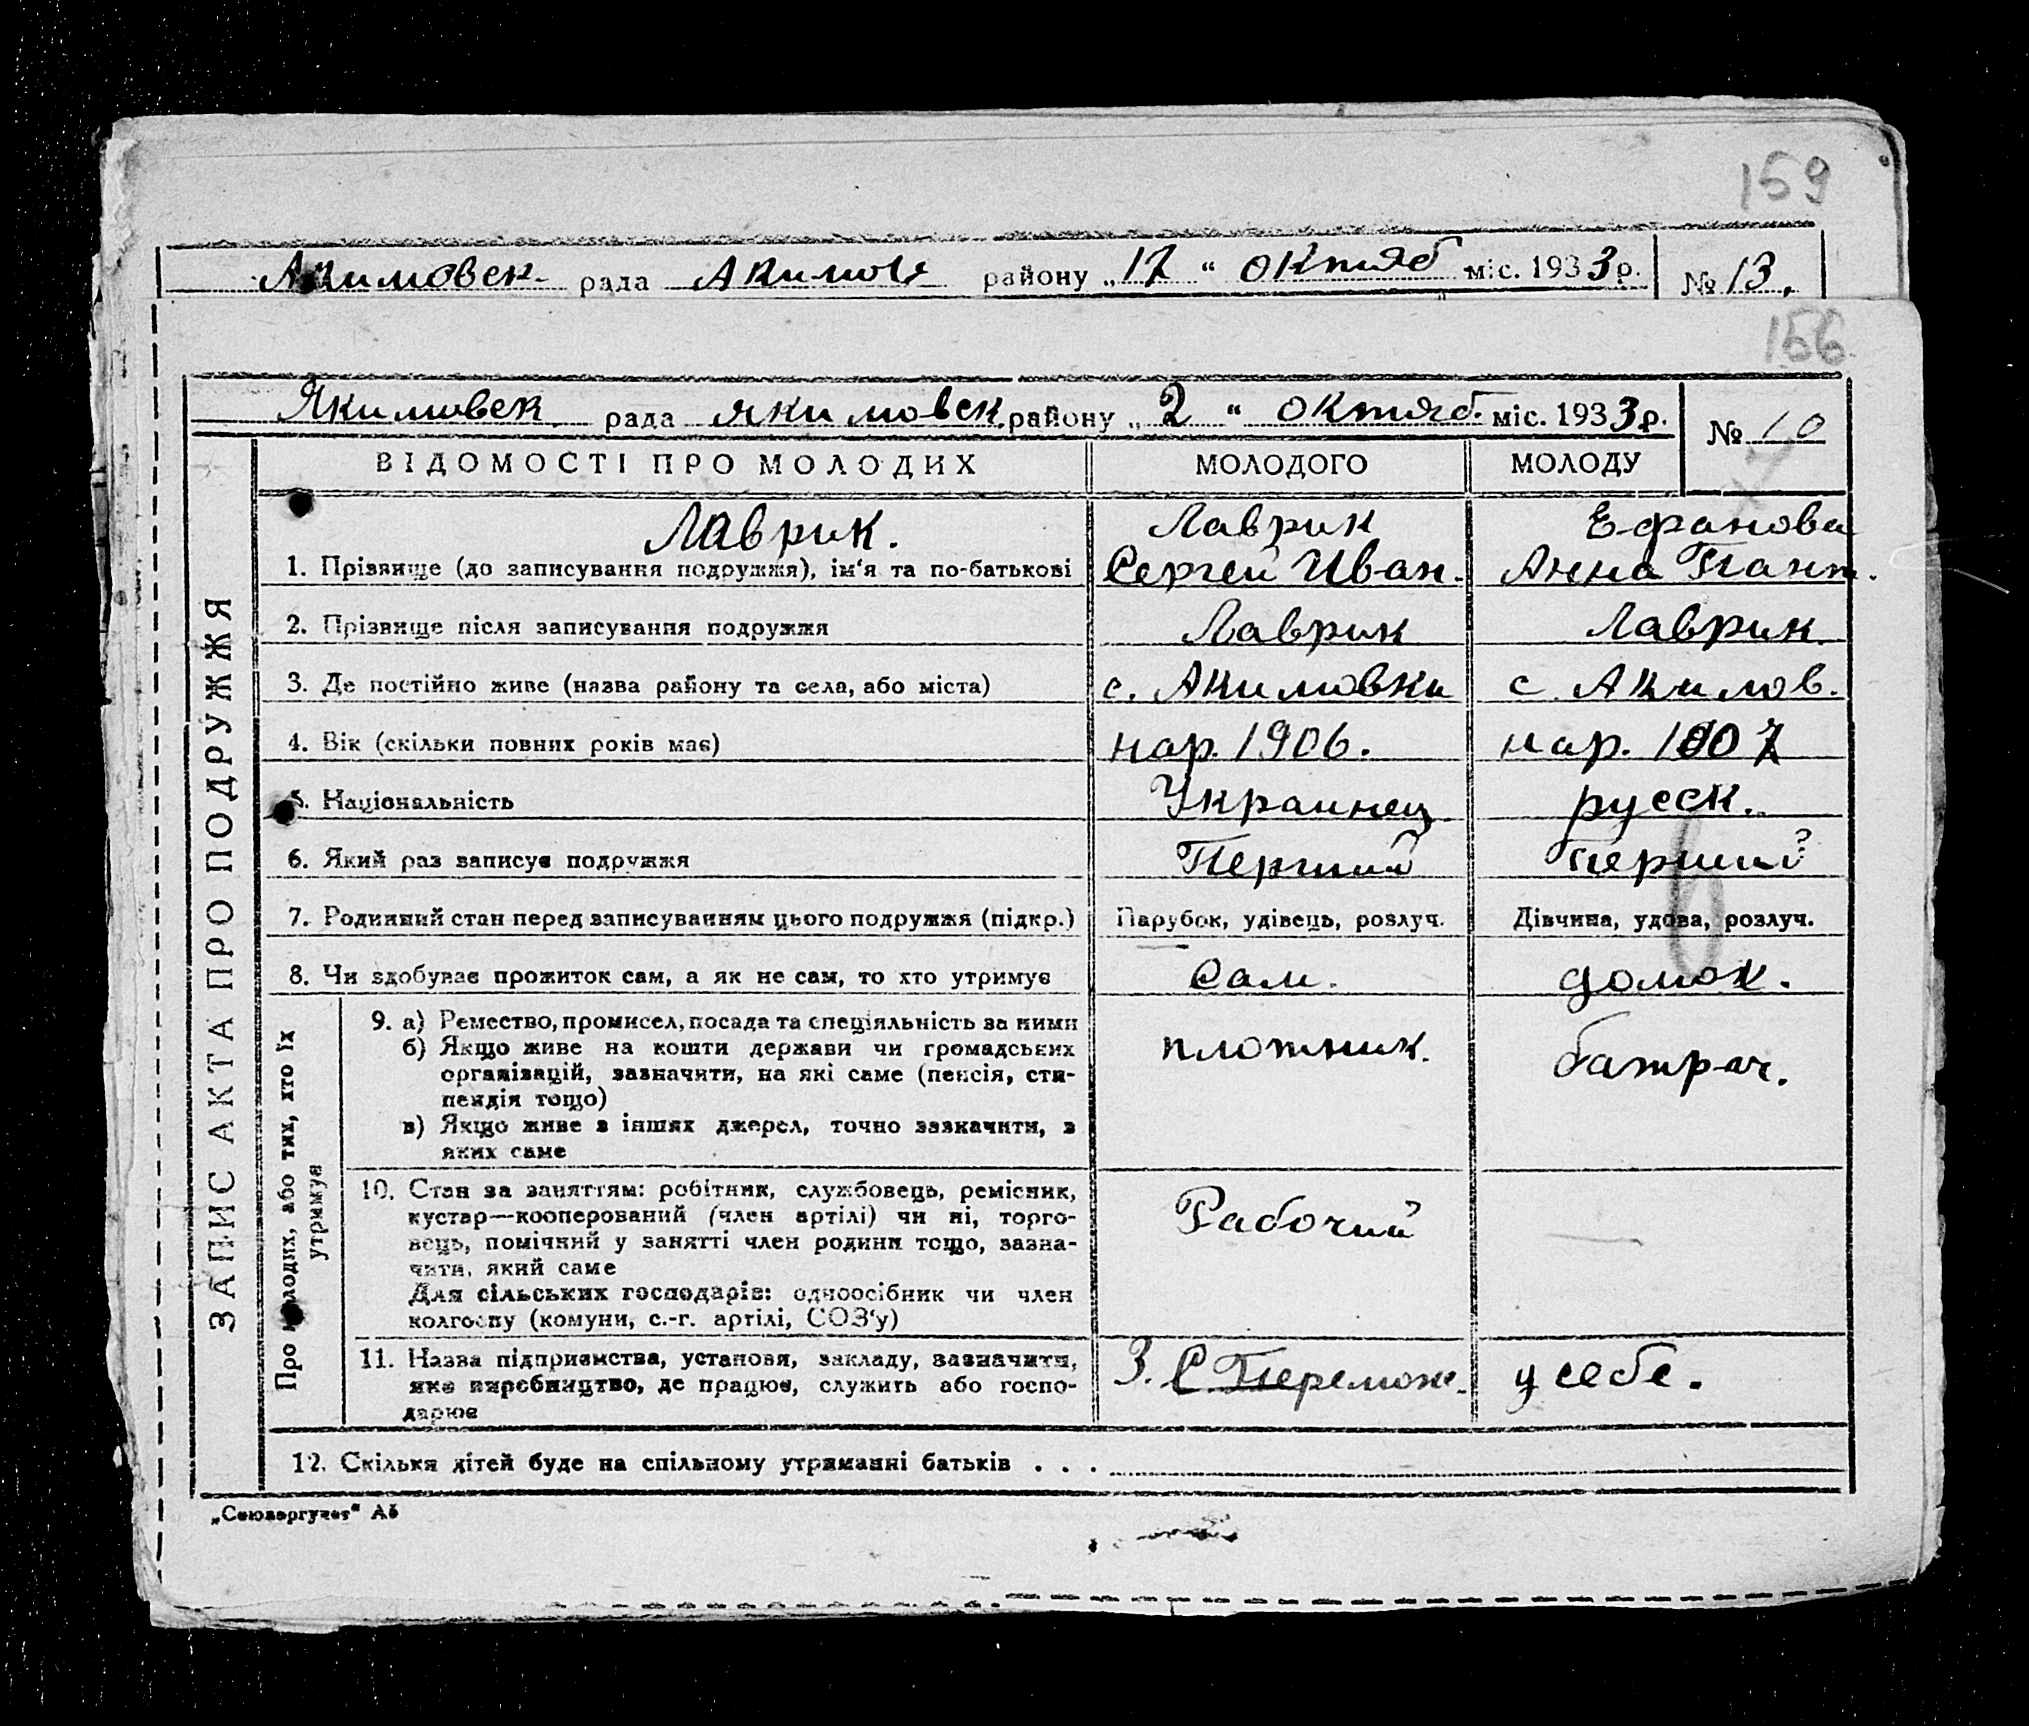 159
Акимовск. рада Акимов района „17“ октяб міс. 1933р. № 13.
156
Якимовск рада якимовск. району „2“ октяб. міс. 1933р. № 10
ВІДОМОСТІ ПРО МОЛОДИХ МОЛОДОГО МОЛОДУ
ЗАПИС АКТА ПРО ПОДРУЖЖЯ
Лаврик. Лаврик Ефанова
1. Прізвище (до записування подружжя), ім'я та по-батькові Сергей Иван. Анна Пант.
2. Прізвище після записування подружжя Лаврик Лаврик
3. Де постійно живе (назва району та села, або міста) с. Акимовки с. Акимов.
4. Вік (скільки повних років має) нар. 1906. нар. 1907
5. Національність Украинец русск.
6. Який раз записує подружжя Перший перший
7. Родинний стан перед записуванням цього подружжя (підкр.) Парубок, удівець, розлуч. Дівчина, удова, розлуч.
8. Чи здобуває прожиток сам, а як не сам, то хто утримує Сам. домох.
Про молодих, або тих, хто їх утримує
9. а) Ремество, промисел, посада та спеціяльність за ними плотник. батрач.
б) Якщо живе на кошти держави чи громадських
організацій, зазначити, на які саме (пенсія, сти-
пендія тощо)
в) Якщо живе з інших джерел, точно зазначити, з
яких саме
10. Стан за заняттям: робітник, службовець, ремісник, Рабочий
кустар—кооперований (член артілі) чи ні, торго-
вець, помічний у занятті член родини тощо, зазна-
чити, який саме
Для сільських господарів: одноосібник чи член
колгоспу (комуни, с.-г. артілі, СОЗ'у)
11. Назва підприємства, установи, закладу, зазначити, З. С. Перемож. у себе.
яке виробництво, де працює, служить або госпо-
дарює
12. Скільки дітей буде на спільному утриманні батьків . . .